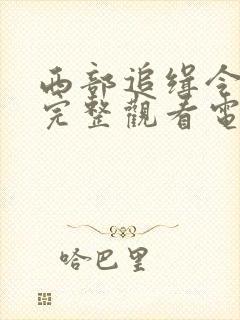 西部追缉令
完整觀看電
哈巴里